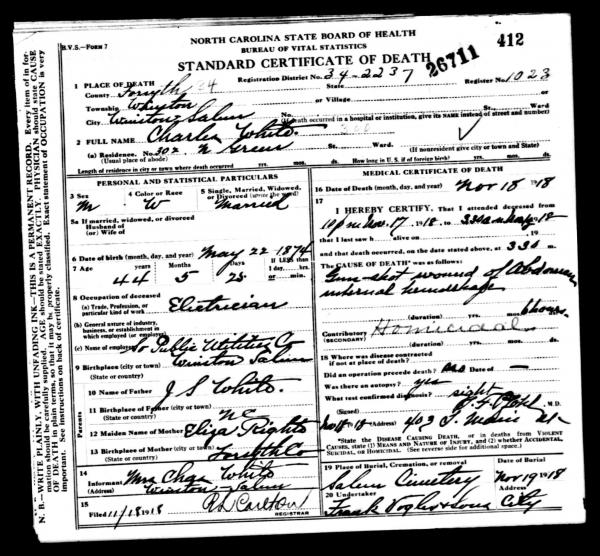 NORTH CAROLINA STATE BOARD OF HEALTH
BUREAU OF VITAL STATISTICS
B.V.S.—FORM 7
STANDARD CERTIFICATE OF DEATH
26711
412
1 PLACE OF DEATH
Registration District No. 34-2237
Register No. 1023
County Forsyth
State
Township Winston
or Village
City Winston Salem
No. St. Ward
(If death occurred in a hospital or institution, give its NAME instead of street and number)
2 FULL NAME Charlie White
(a) Residence. No. 302 N Green St. Ward.
(Usual place of abode)
(If nonresident give city or town and State)
Length of residence in city or town where death occurred yrs. mos. ds. How long in U. S. if of foreign birth? yrs. mos. ds.
PERSONAL AND STATISTICAL PARTICULARS
3 Sex
M
4 Color or Race
W
5 Single, Married, Widowed, or Divorced (write the word)
Married
5a If married, widowed, or divorced
Husband of
(or) Wife of
6 Date of birth (month, day, and year) May 22 1874
7 Age
Years
Months
Days
If LESS than
1 day, hrs.
or min.
44 5 28
8 Occupation of deceased
(a) Trade, Profession, or
particular kind of work
Electrician
(b) General nature of industry,
business, or establishment in
which employed (or employer)
(c) Name of employer So Public Utilities Co
9 Birthplace (city or town) Winston Salem
(State or country)
Parents
10 Name of Father J S White.
11 Birthplace of Father (city or town)
(State or country) NC
12 Maiden Name of Mother Eliza
13 Birthplace of Mother (city or town)
(State or country) Forsyth Co
14
Informant Mrs Chas White
(Address) Winston Salem
15
Filed 11/18 1918
R L Carlton
REGISTRAR
MEDICAL CERTIFICATE OF DEATH
16 Date of Death (month, day, and year) Nov 18 1918
17
I HEREBY CERTIFY, That I attended deceased from
10 p m Nov. 17, 1918, to 1918
that I last saw h alive on 19
and that death occurred, on the date stated above, at 330 m.
The CAUSE OF DEATH* was as follows:
Gun-shot wound of Abdomen
internal hemorrhage
(duration) yrs. mos. 6 hours.
Contributory Homicidal
(SECONDARY)
(duration) yrs. mos. ds.
18 Where was disease contracted
if not at place of death?
Did an operation precede death? no Date of —
Was there an autopsy? yes
What test confirmed diagnosis? sight
(Signed) M.D.
Nov 18 18 (Address) 403
*State the DISEASE CAUSING DEATH, or in deaths from VIOLENT
CAUSES, state (1) MEANS AND NATURE OF INJURY, and (2) whether ACCIDENTAL,
SUICIDAL, or HOMICIDAL. (See reverse side for additional space.)
19 Place of Burial, Cremation, or removal
Date of Burial
Salem Cemetery
Nov 19 1918
20 Undertaker
Address
Frank Vogler & sons City
N. B.—WRITE PLAINLY, WITH UNFADING INK—THIS IS A PERMANENT RECORD. Every item of infor-
mation should be carefully supplied. AGE should be stated EXACTLY. PHYSICIAN should state CAUSE
OF DEATH in plain terms, so that it may be properly classified. Exact statement of OCCUPATION is very
important. See instructions on back of certificate.